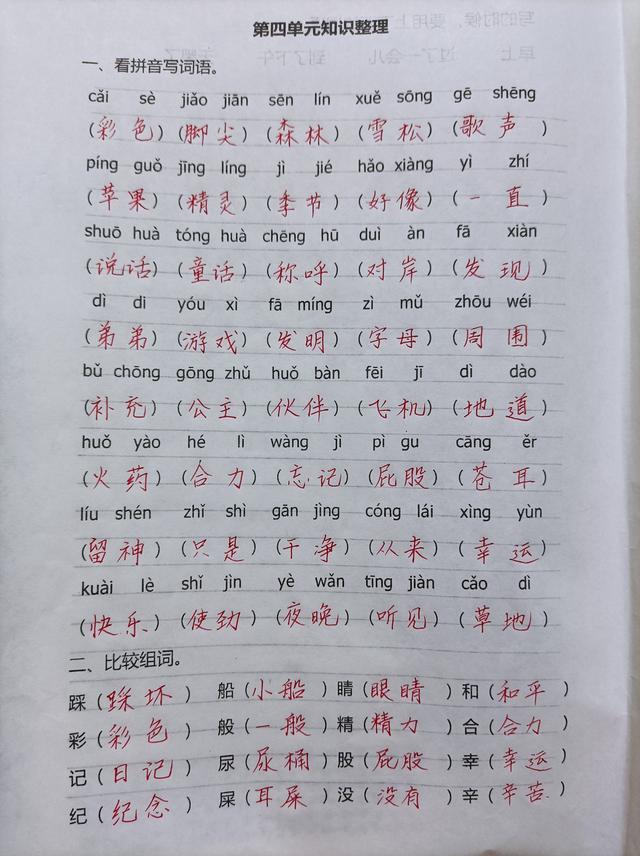 第四单元知识整理
一、看拼音写词语。
cǎi sè jiǎo jiān sēn lín xuě sōng gē shēng
(彩色)(脚尖)(森林)(雪松)(歌声)
píng guǒ jīng líng jì jié hǎo xiàng yì zhí
(苹果)(精灵)(季节)(好像)(一直)
shuō huà tóng huà chēng hū duì àn fā xiàn
(说话)(童话)(称呼)(对岸)(发现)
dì di yóu xì fā míng zì mǔ zhōu wéi
(弟弟)(游戏)(发明)(字母)(周围)
bǔ chōng gōng zhǔ huǒ bàn fēi jī dì dào
(补充)(公主)(伙伴)(飞机)(地道)
huǒ yào hé lì wàng jì pì gu cāng ěr
(火药)(合力)(忘记)(屁股)(苍耳)
líu shén zhǐ shì gān jìng cóng lái xìng yùn
(留神)(只是)(干净)(从来)(幸运)
kuài lè shǐ jìn yè wǎn tīng jiàn cǎo dì
(快乐)(使劲)(夜晚)(听见)(草地)
二、比较组词。
踩(踩坏) 船(小船)睛(眼睛)和(和平)
彩(彩色) 般(一般)精(精力)合(合力)
记(日记) 尿(尿桶)股(屁股)幸(幸运)
纪(纪念) 屎(耳屎)没(没有)辛(辛苦)